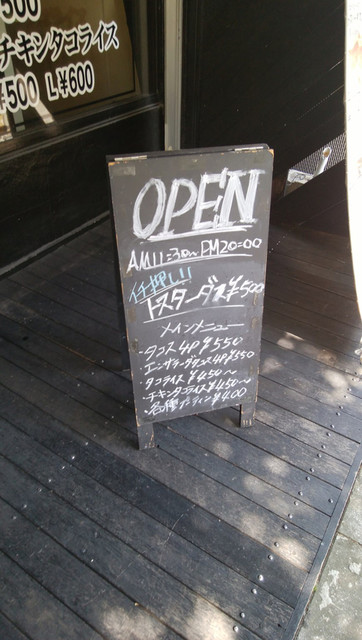 500
チキンタコライス
¥500 L¥600
OPEN
AM11:30~PM20:00
イチ押し!!
トスターダス¥500
メインメニュー
・タコス4P¥550
・エンチラーダタコス4P¥550
・タコライス¥450~
・チキンタコライス¥450~
・各種プーティン¥400